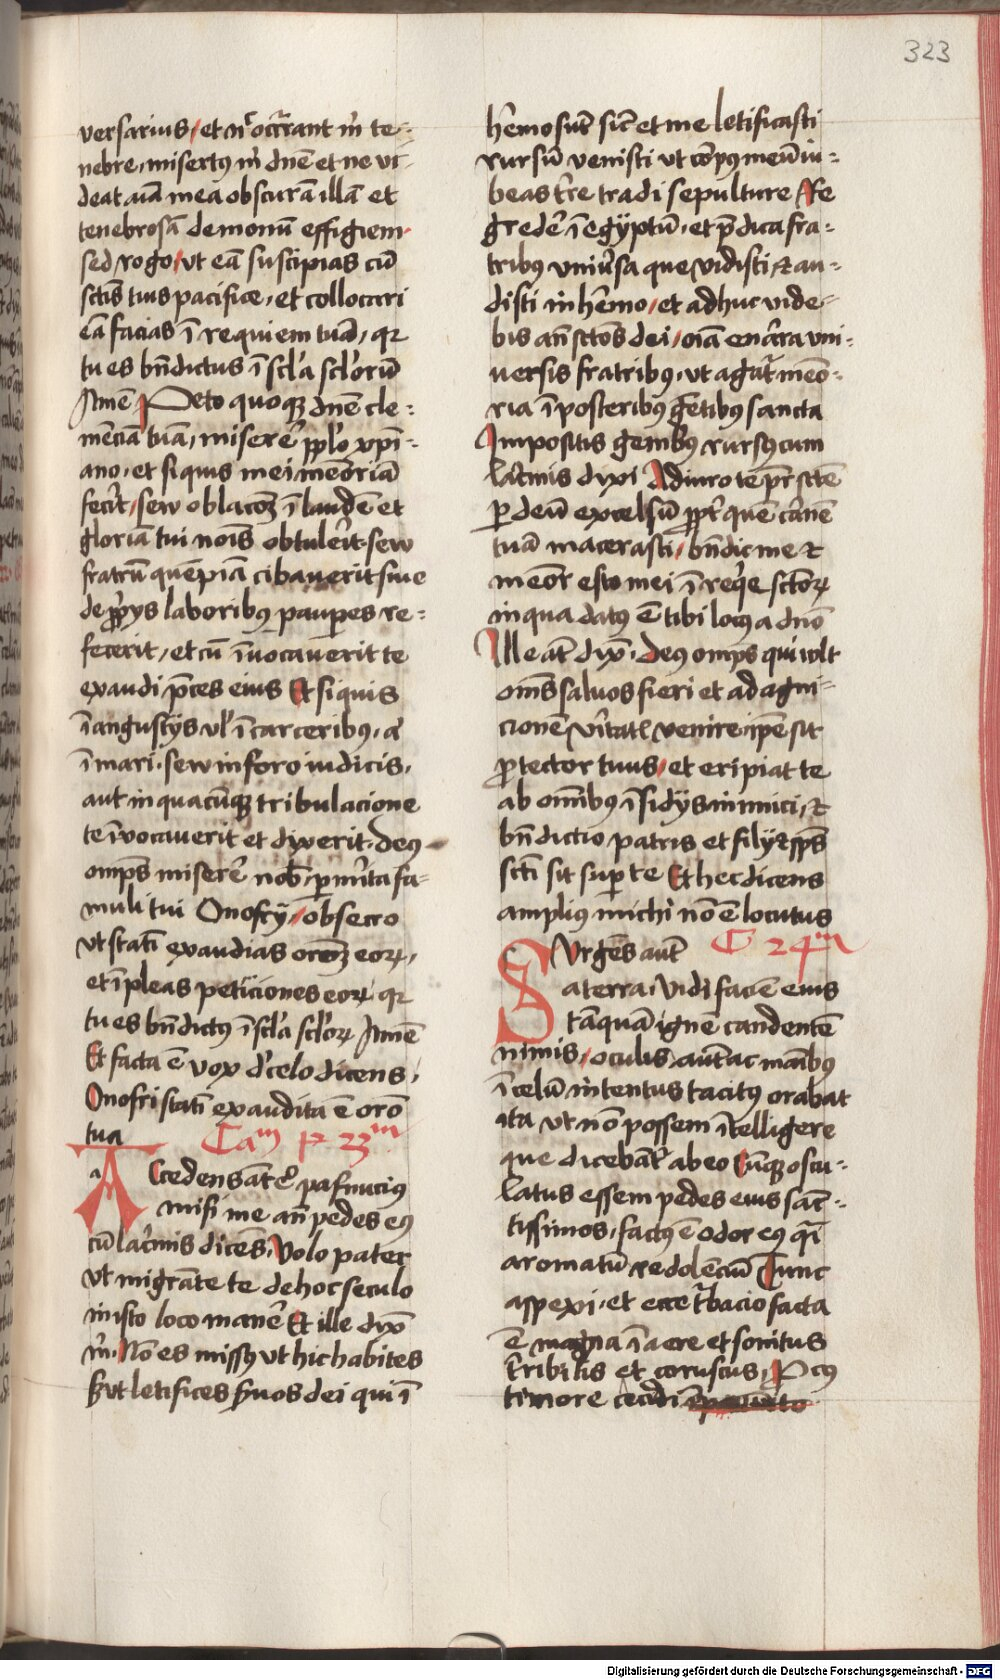 323
versarius, et nō ocʳrant m̄ te-
nebre, misertꝰ m̄ dn̄e et ne vi-
deat aīa mea obscurā illā et
tenebrosā demonū effigiem
sed rogo, ut eā suscipias cū
sctīs tuis pacifice, et collocari
eā facias ī requiem tuā, qꝛ
tu es bn̄dictus ī sclʼa sclʼorū
Amē Peto quoqꝫ dn̄e cle-
mēciā tuā, miserēʼ pplʼo xp̄i-
ano, et si quis mei memoriā
fecʼit, sew oblacōꝫ ī laudē et
gloriā tui noīs obtulʼit, sew
fratrū quēpiā cibauerit siue
de ꝓprijs laboribꝰ pauꝑes re-
fecerit, et cū īuocauerit te
exaudi p̄ces eius Et si quis
ī angustijs vlʼ ī carceribꝰ, a
ī mari, sew in foro iudicis,
aut in quacūqꝫ tribulacione
te īvocauerit et dixerit, deꝰ
omp̄s miserēʼ nob̄, ꝑ mʼita fa-
muli tui Onofrij, obsecro
ut statī exaudias orōꝫ eoꝝ,
et īpleas peticiones eoꝝ qꝛ
tu es bn̄dictꝰ ī sclʼa sclʼoꝝ Amē
Et facta ē vox dʼ celo dicens,
Onofri statī exaudita ē orō
tua
Caᵐ 23ᵐ
Accedens aūt ʼ pafnucius
misi me an̄ pedes eꝰ
cū lacʼmis dicēs, Volo pater
ut migrāte te de hoc seculo
in isto loco manēʼ Et ille dix̄
m̄, Nō es missꝰ ut hic habites
sʒ ut letifices sʼuos dei qui ī
hʼemo sūt sic̄ et me letificasti
rursū venisti ut corpꝰ meū iu-
beas tʼre tradi sepulture Re
gredēʼ ī egyptū, et p̄dica fra-
tribꝰ vniūsa que vidisti et au-
disti in hʼemo, et adhuc vide-
bis an̄ sctōs dei, oīa enʼra vni-
versis fratribꝰ, ut agāt memo-
ria ī posteribꝰ gētibꝰ sancta
Impositis genibꝰ rursꝰ cum
lacʼmis dixi Adiuro te pr̄ sctē
ꝑ deū excelsū ꝓpt̄ quē cʼnē
tuā macerasti, bn̄dic me et
memor esto mei ī reqʼe sctōꝝ
in qua datꝰ ē tibi locꝰ a dn̄o
Ille aūt dix̄, deꝰ omp̄s qui vult
oms̄ saluos fieri et ad agni-
cionē vʼitatꝭ venire, ip̄e sit
ꝓtector tuus, et eripiat te
ab omībꝰ īsidijs inimici, et
bn̄dictio patris et filij et sp̄s
sctī sit suꝑ te Et hec dicens
amplius michi nō ē locutus
C 24ᵐ
Surgēs aūt
a terra, vidi faciē eius
tāquā ignē candentē
nimis, oculis aūt ac maībꝰ
ī celū intentus tacitꝰ orabat
ita ut nō possem ītelligere
que dicebāt ab eo Cūqꝫ oscu-
latus essem pedes eius sāc-
tissimos, factꝰ ē odor eꝰ qʼi
aromatū redolēciū Tunc
aspexi, et ecce tʼbacio facta
ē magna ī aere et sonitus
tʼribilis et coruscus, Pcꝰ
timore cecidi